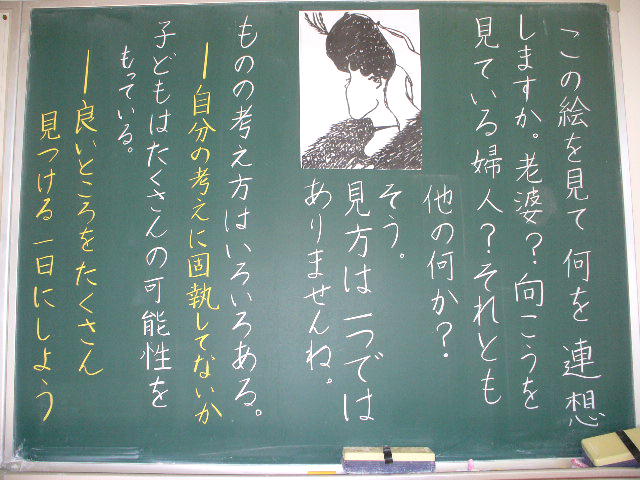 この絵を見て何を連想
しますか。老婆？向こうを
見ている婦人？それとも
他の何か？
そう。
見方は一つでは
ありませんね。
ものの考え方はいろいろある。
ー自分の考えに固執してないか
子どもはたくさんの可能性を
もっている。
ー良いところをたくさん
見つける一日にしよう